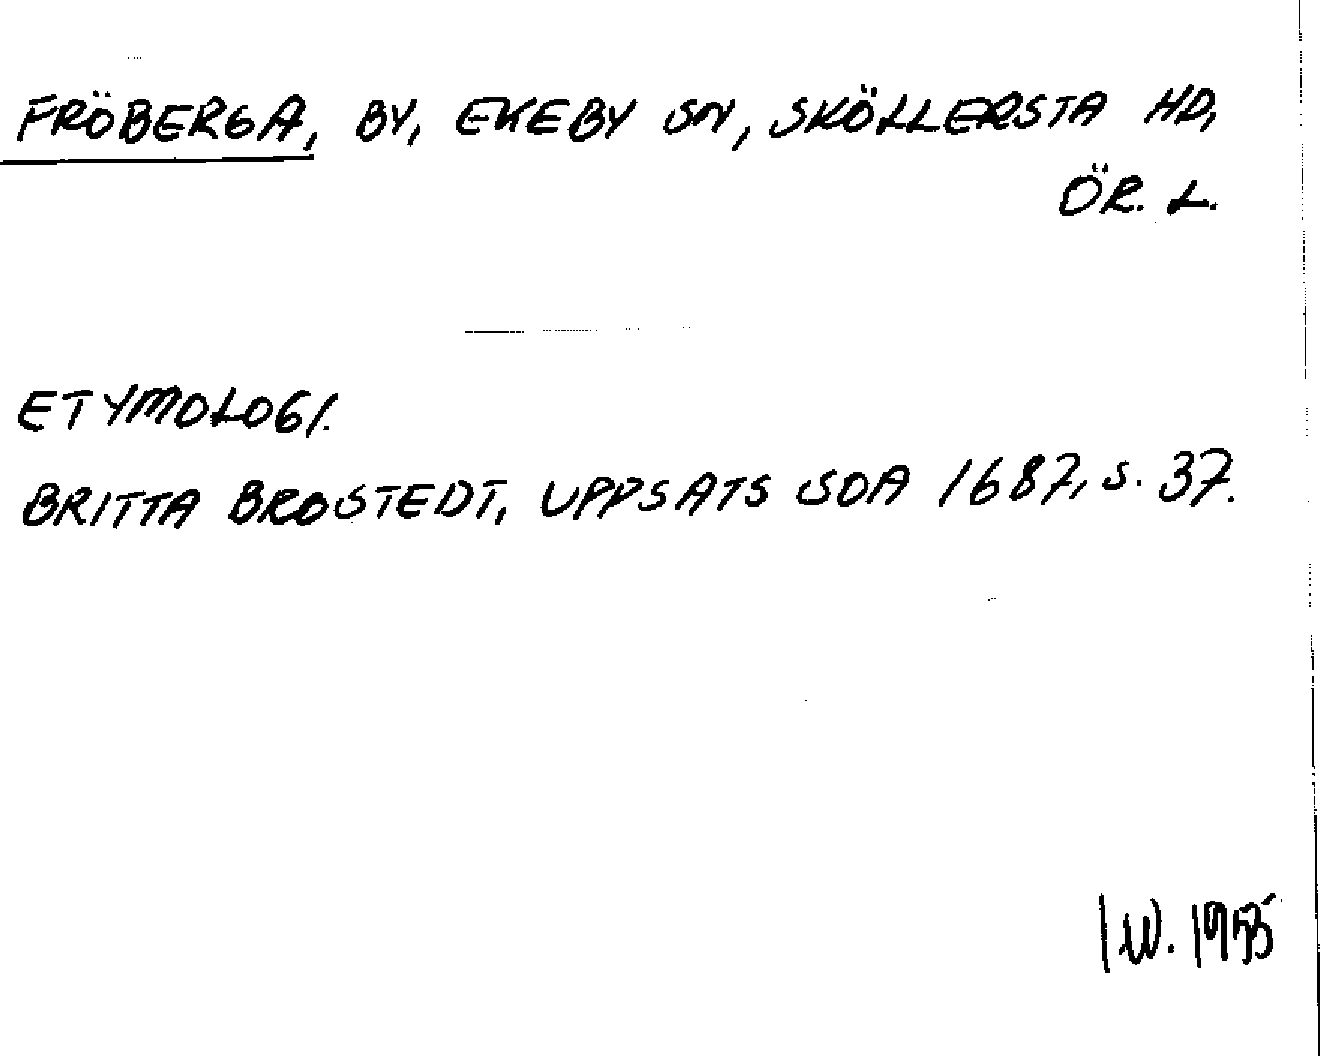 FRÖBERGA, BY, EKEBY SN, SKÖLLERSTA HD,
ÖR. L.
ETYMOLOGI.
BRITTA BROSTEDT, UPPSATS SOA 1687, S. 37.
IW. 1955